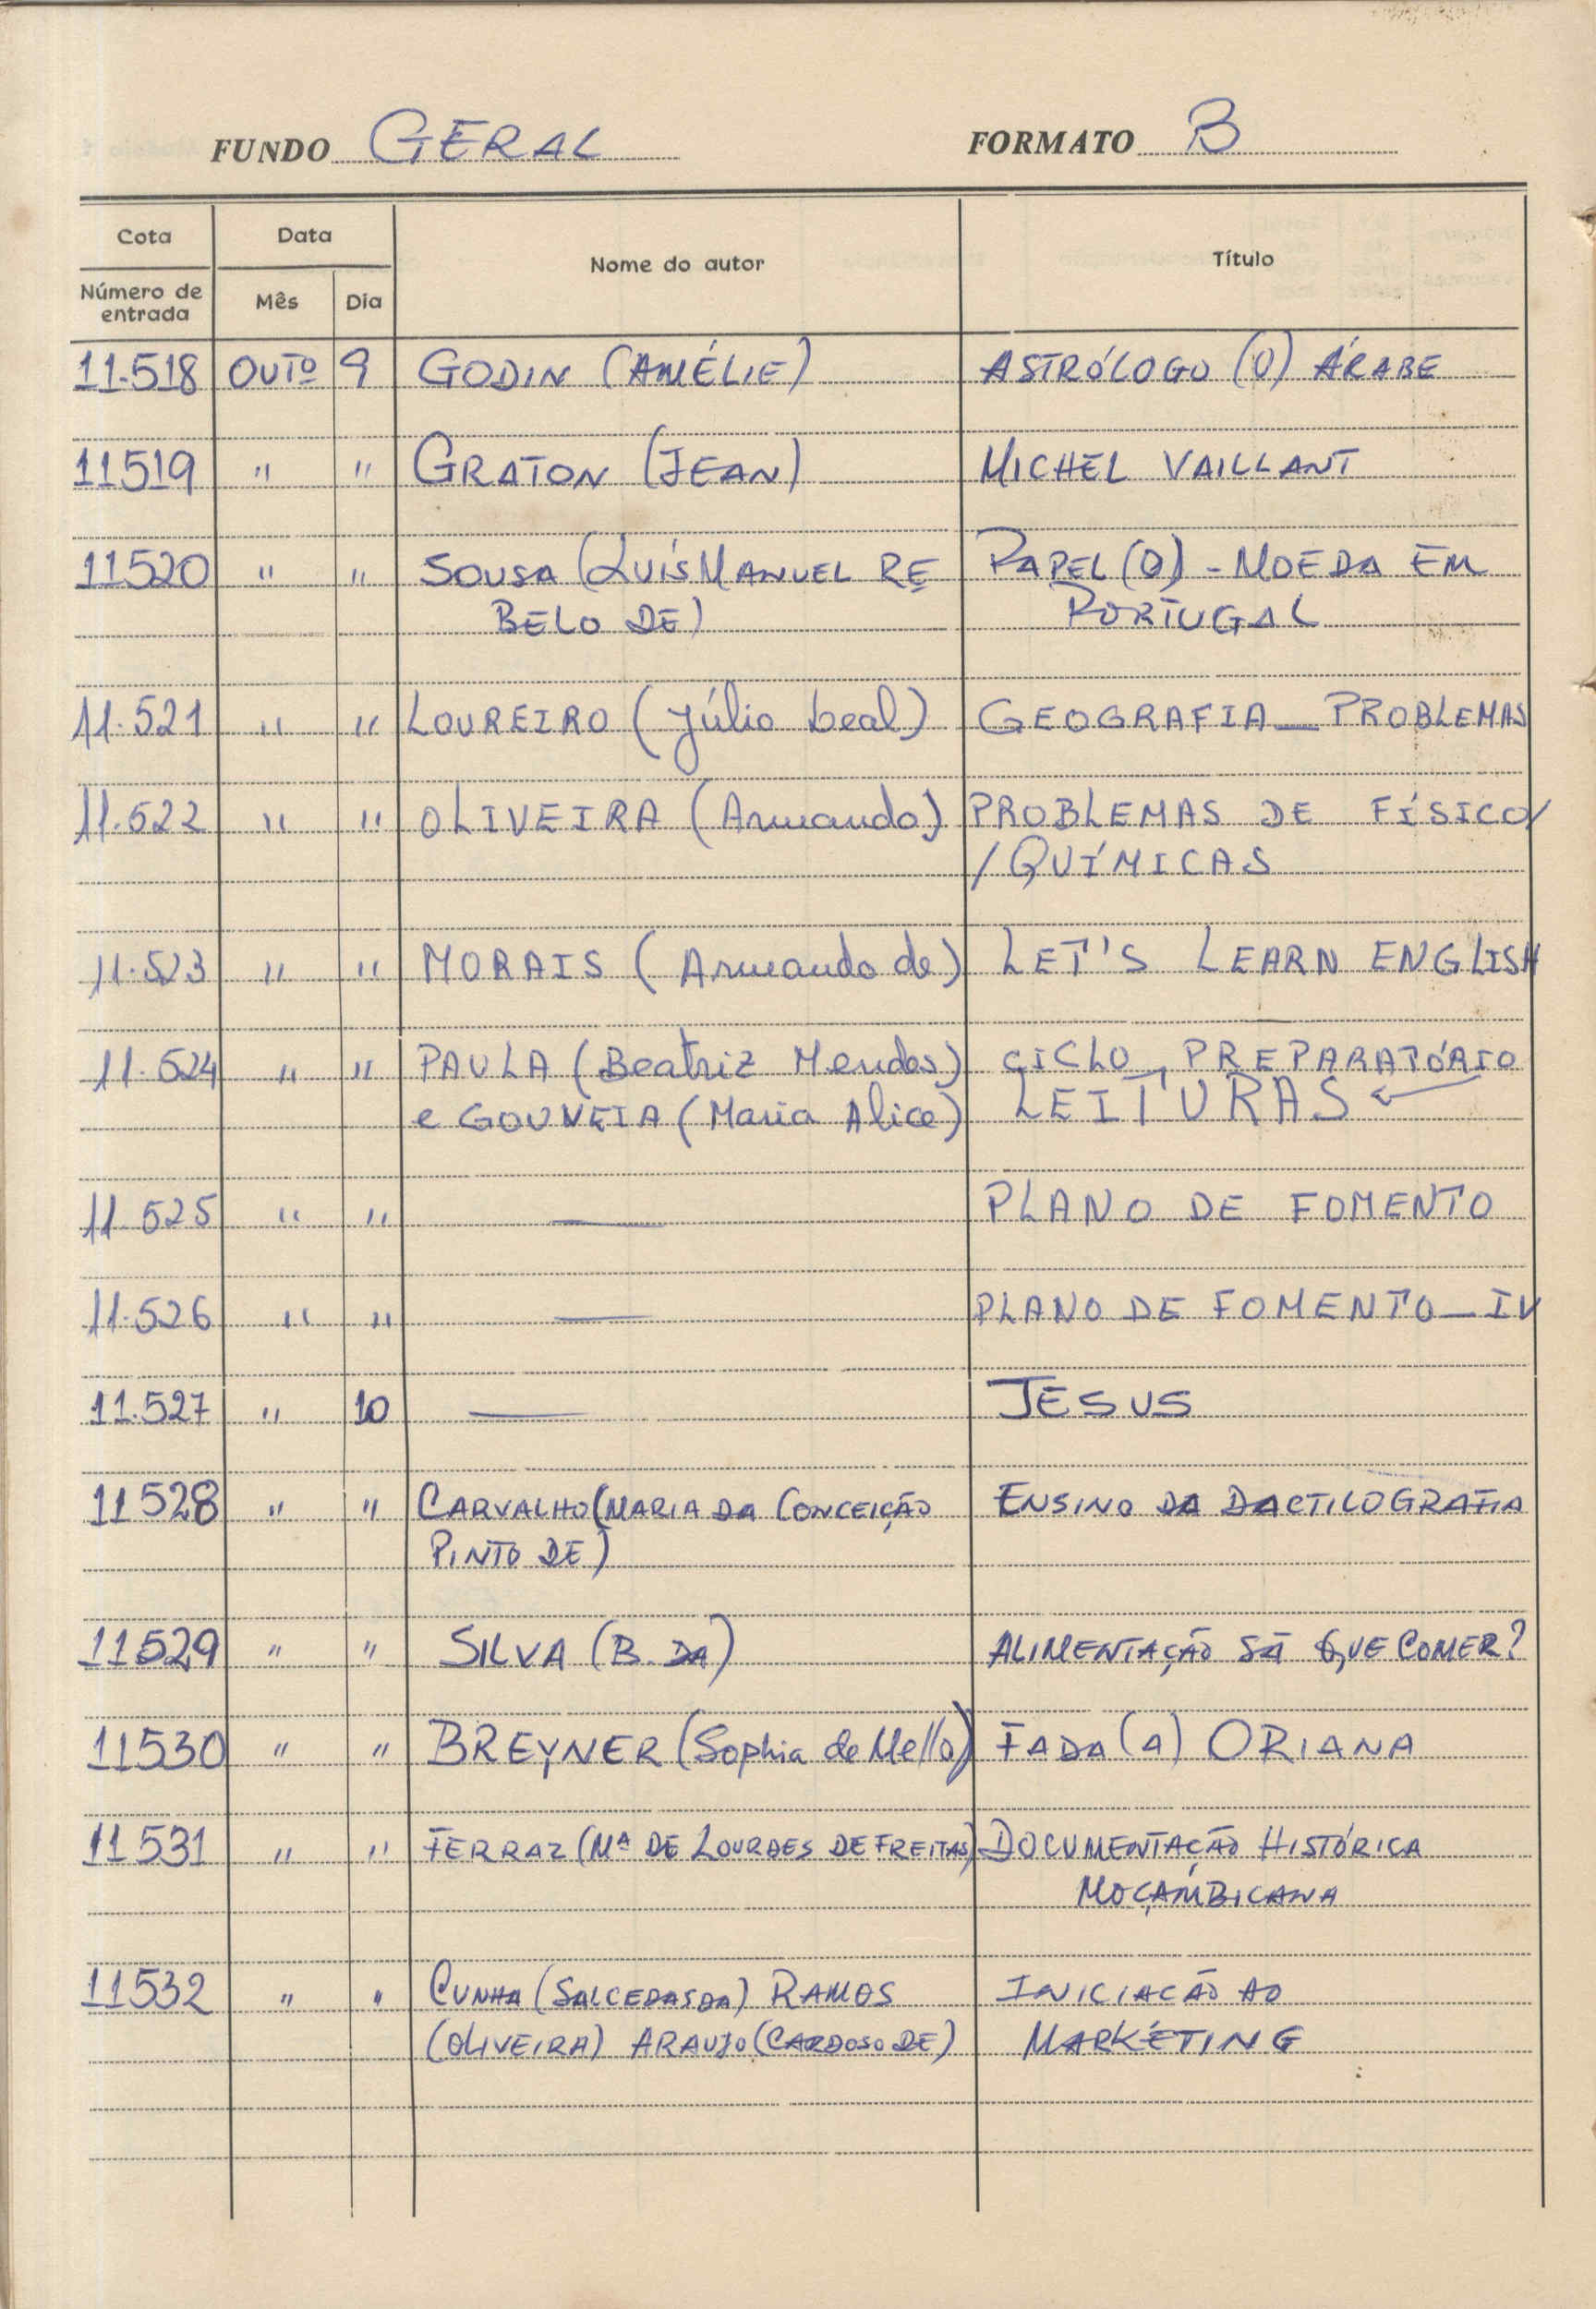 FUNDO GERAL FORMATO B
Cota Data Nome do autor Título
Número de entrada Mês Dia
11.518 OUTº 9 GODIN (AMÉLIE) ASTRÓLOGO (O) ÁRABE
11519 " " GRATON (JEAN) MICHEL VAILLANT
11520 " " SOUSA (LUÍS MANUEL RE PAPEL (O) - MOEDA EM
BELO DE) PORTUGAL
11.521 " " LOUREIRO (Júlio Leal) GEOGRAFIA — PROBLEMAS
11.522 " " OLIVEIRA (Armando) PROBLEMAS DE FÍSICO/
/QUÍMICAS
11.523 " " MORAIS (Armando de) LET'S LEARN ENGLISH
11.524 " " PAULA (Beatriz Mendes) CICLO PREPARATÓRIO
e GOUVEIA (Maria Alice) LEITURAS
11.525 " " — PLANO DE FOMENTO
11.526 " " — PLANO DE FOMENTO — IV
11.527 " 10 — JESUS
11528 " " CARVALHO (MARIA DA CONCEIÇÃO ENSINO DA DACTILOGRAFIA
PINTO DE)
11529 " " SILVA (B. DA) ALIMENTAÇÃO SÃ QUE COMER?
11530 " " BREYNER (Sophia de Mello) FADA (A) ORIANA
11531 " " FERRAZ (Mª DE LOURDES DE FREITAS) DOCUMENTAÇÃO HISTÓRICA
MOÇAMBICANA
11532 " " CUNHA (SALCEDAS DA) RAMOS INICIACÃO AO
(OLIVEIRA) ARAUJO (CARDOSO DE) MARKÉTING